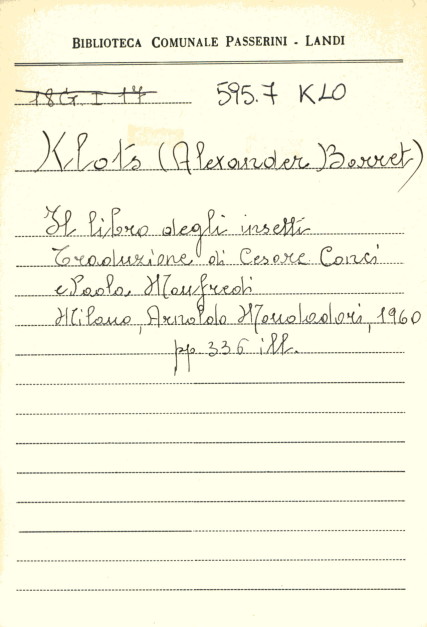 BIBLIOTECA COMUNALE PASSERINI - LANDI
18G I 17 595.7 KLO
Klots (Alexander Barret)
Il libro degli insetti
Traduzione di Cesare Conci
e Paola Manfredi
Milano, Arnoldo Mondadori, 1960
pp. 336 ill.